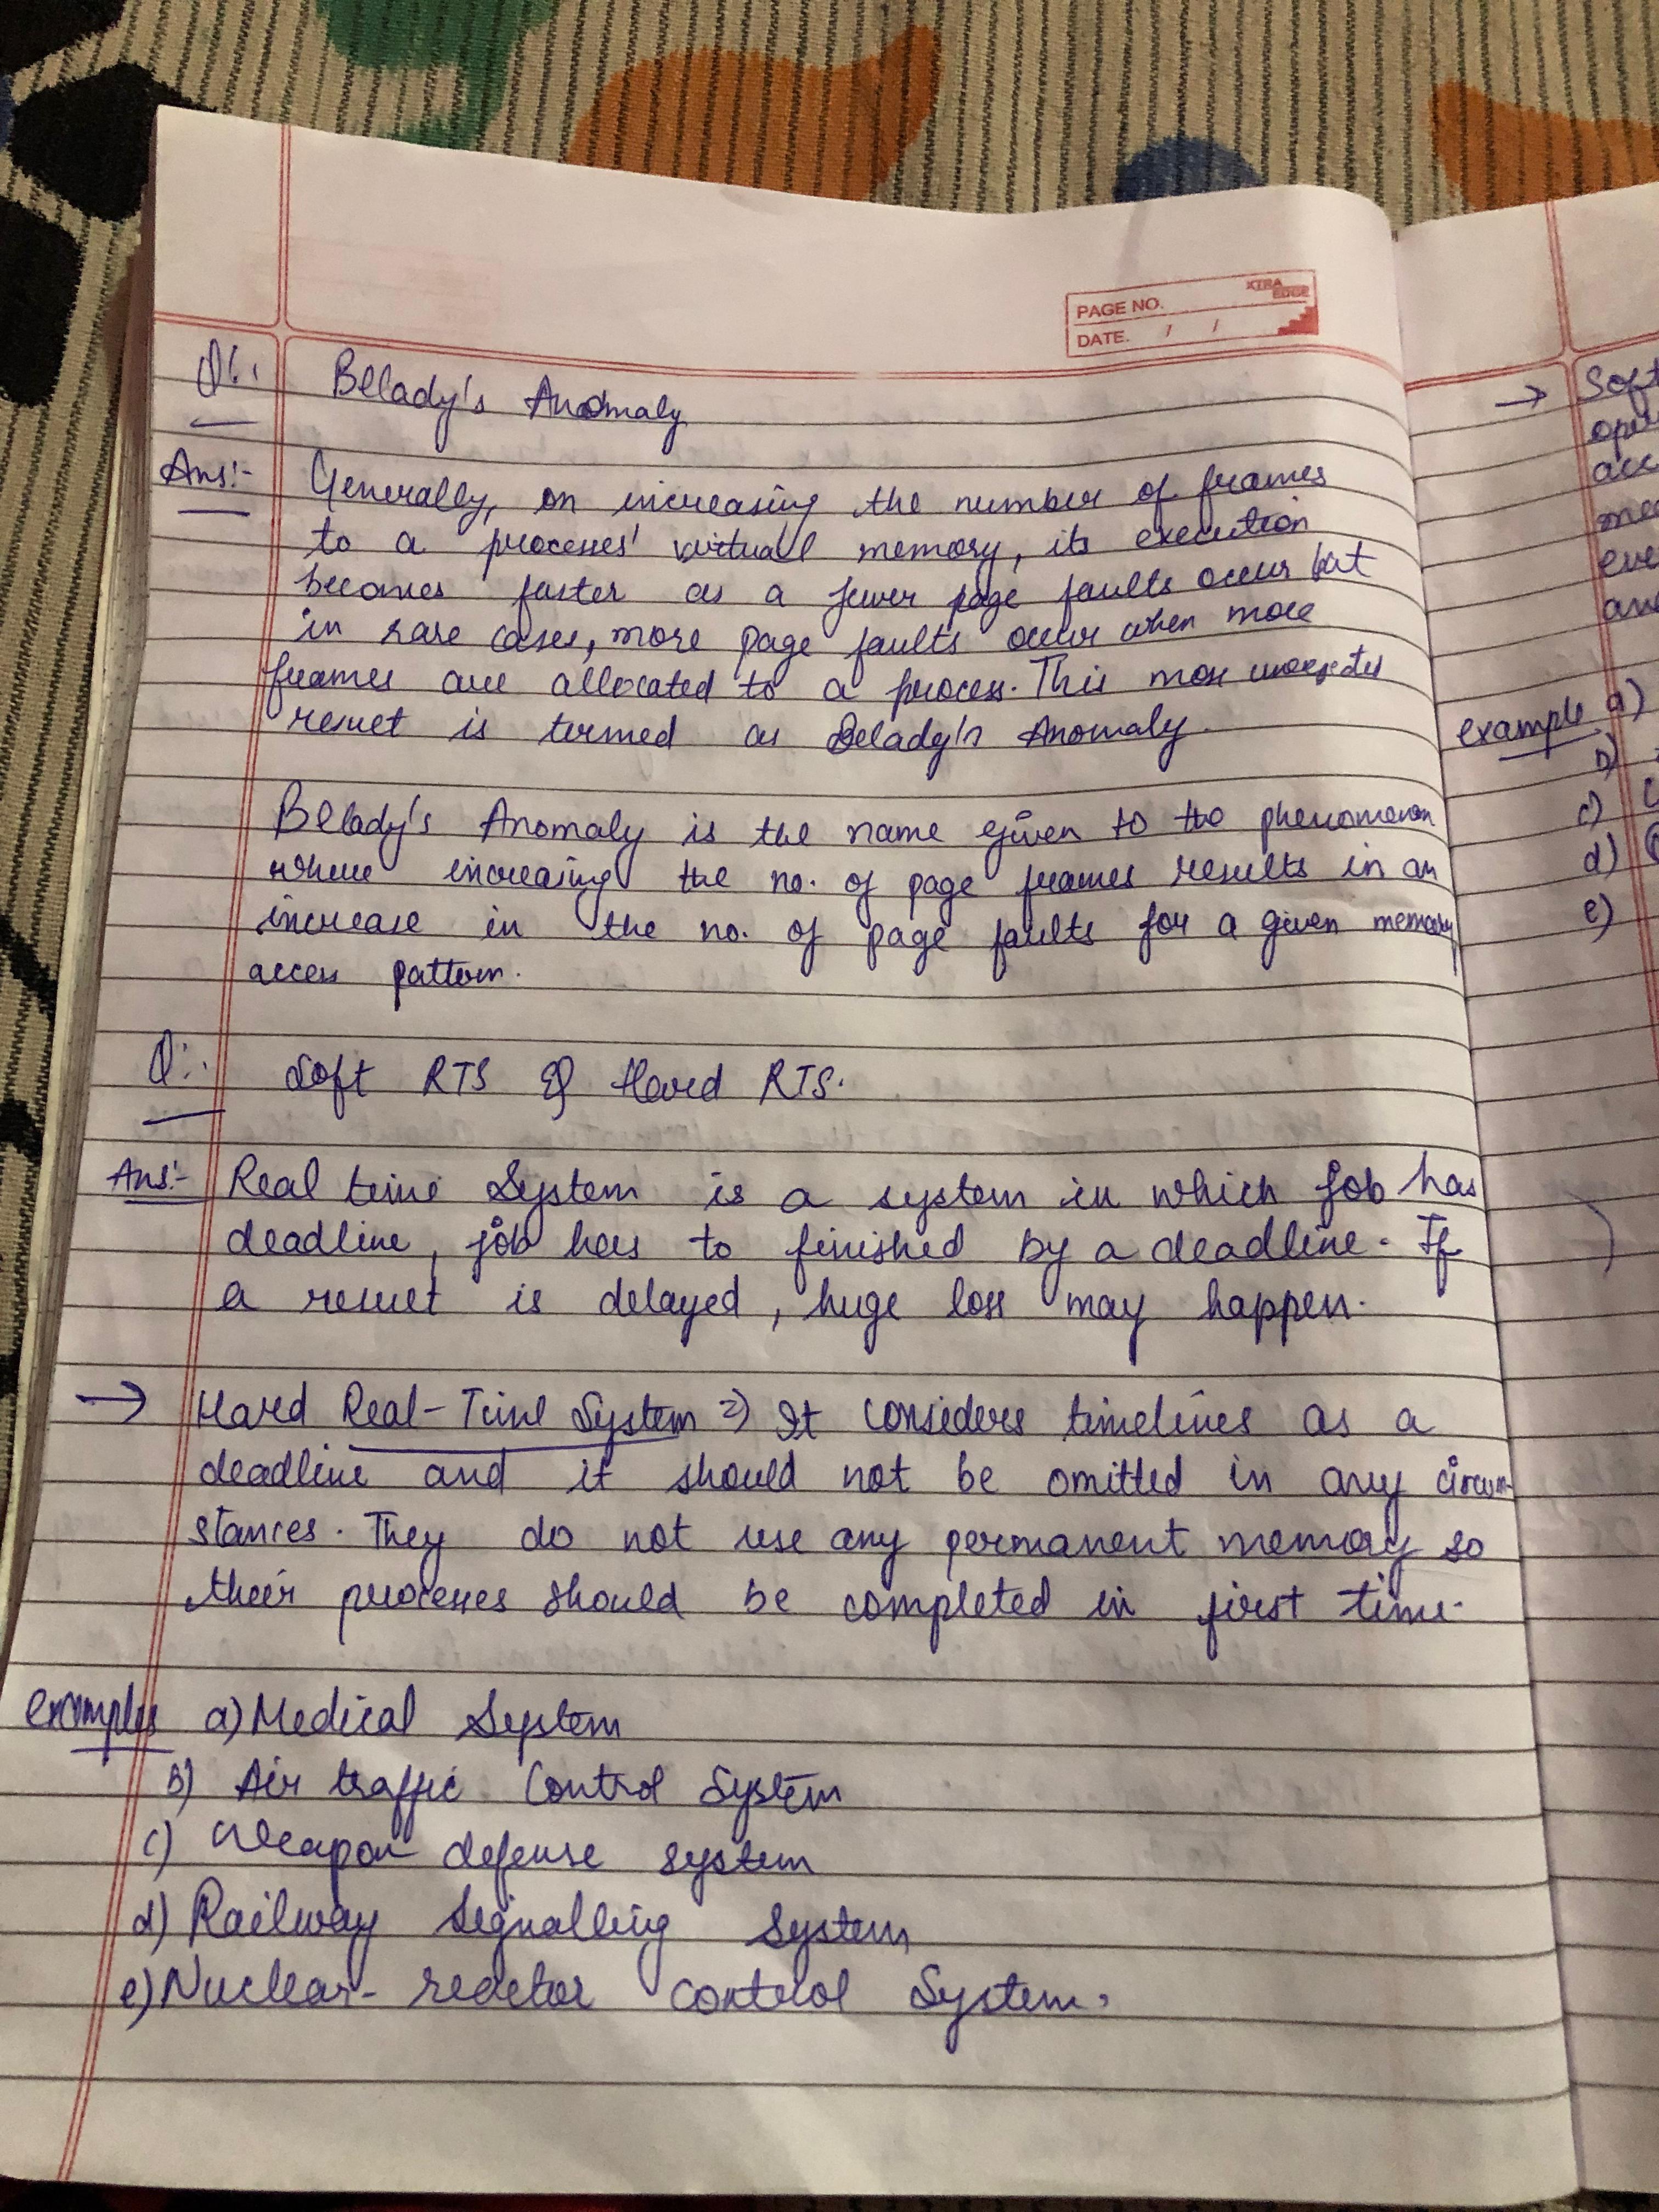 PAGE NO.
XTRA EDGE
DATE. / /
Q:. Belady's Anomaly
Ans:- Generally, on increasing the number of frames
to a processes' virtual memory, its execution
becomes faster as a fewer page faults occur but
in rare cases, more page faults occur when more
frames are allocated to a process. This most
result is termed as Belady's Anomaly.
Belady's Anomaly is the name given to the phenomenon
where increasing the no. of page frames results in an
increase in the no. of page faults for a given memory
access pattern.
Q:. Soft RTS & Hard RTS.
Ans:- Real time System is a system in which job has
deadline, job has to finished by a deadline. If
a result is delayed, huge loss may happen.
→ Hard Real-Time System => It considers timelines as a
deadline and it should not be omitted in any circum-
stances. They do not use any permanent memory so
their processes should be completed in first time.
examples a) Medical System
b) Air traffic Control System
c) Weapon defense system
d) Railway Signalling System
e) Nuclear reactor control System.
→ Soft
example a)
b)
c)
d)
e)